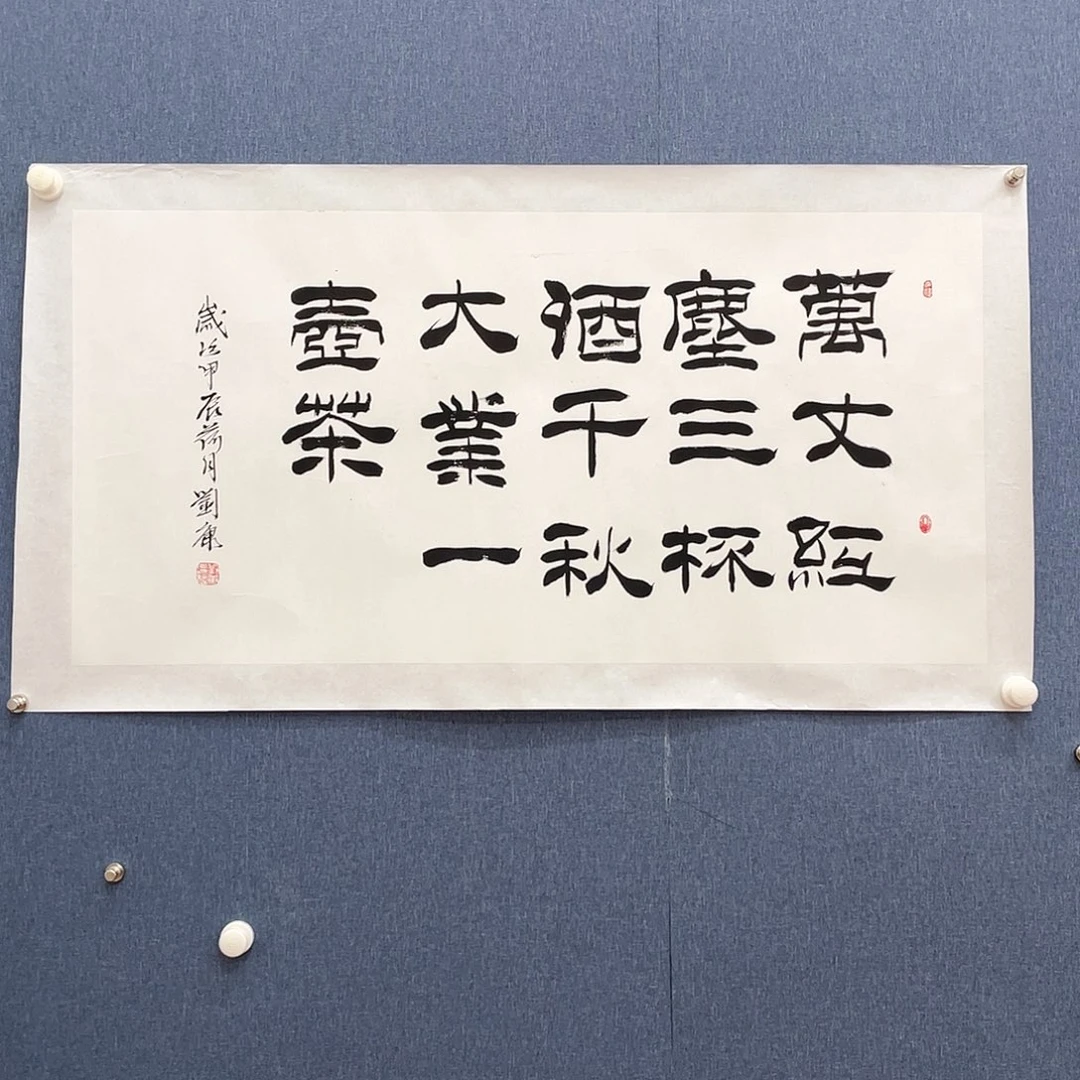 萬丈紅
塵三杯
酒千秋
大業一
壺茶
歲次甲辰荷月劉康